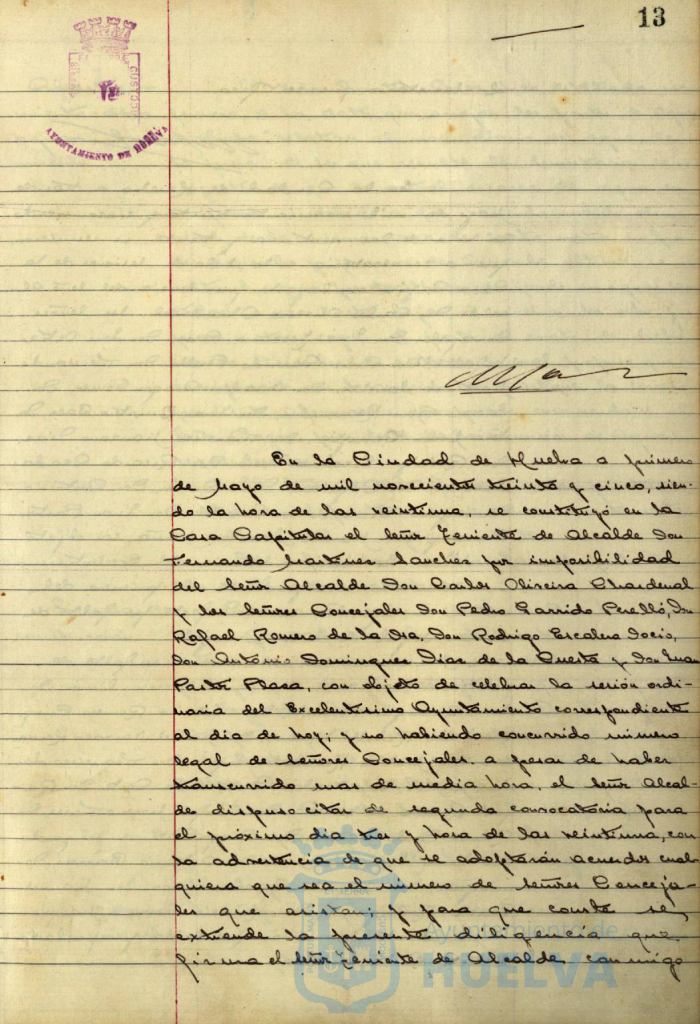 13
AYUNTAMIENTO DE HUELVA
En la Ciudad de Huelva a primero
de Mayo de mil novecientos treinta y cinco, sien-
do la hora de las veintiuna, se constituyó en la
Casa Capitular el Señor Teniente de Alcalde Don
Fernando Martinez Sanchez por imposibilidad
del Señor Alcalde Don Carlos Oliveira Chardenal
y los Señores Concejales Don Pedro Garrido Perelló, Don
Rafael Romero de la Osa, Don Rodrigo Escalera Socio,
Don Antonio Dominguez Diaz de la Cuesta y Don Juan
Pastor Plaza, con objeto de celebrar la sesión ordi-
naria del Excelentisimo Ayuntamiento correspondiente
al dia de hoy; y no habiendo concurrido número
legal de Señores Concejales, a pesar de haber
transcurrido mas de media hora, el Señor Alcal-
de dispuso citar de segunda convocatoria para
el próximo dia tres y hora de las veintiuna, con
la advertencia de que se adoptarán acuerdos cual-
quiera que sea el número de Señores Conceja-
les que asistan; y para que conste se
extiende la presente diligencia que
firma el Señor Teniente de Alcalde conmigo
Ayuntamiento de
HUELVA